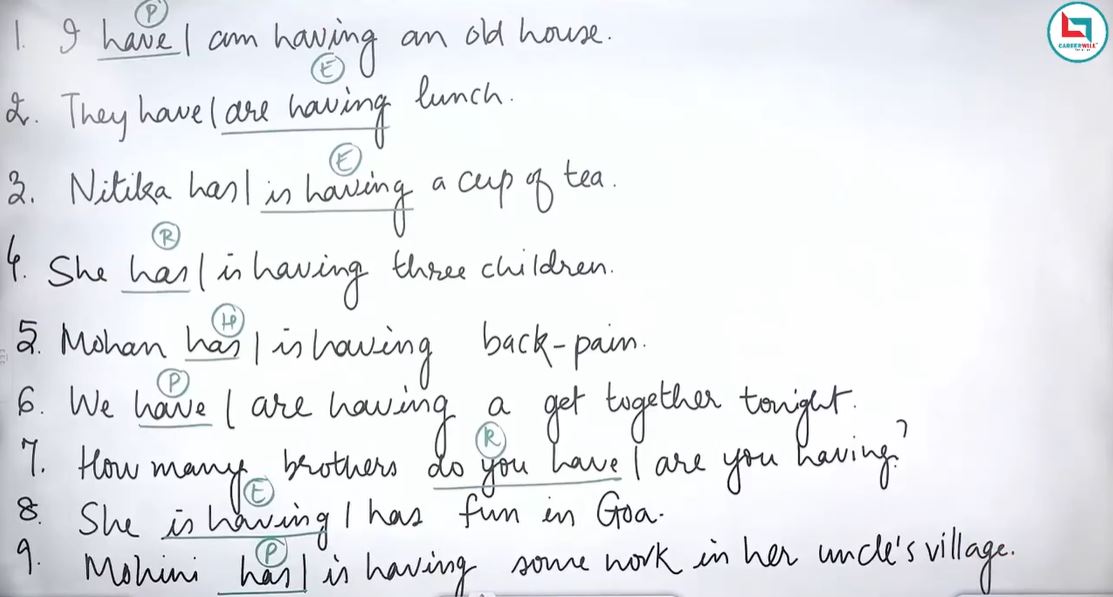 P
1. I have / am having an old house.
E
2. They have / are having lunch.
E
3. Nitika has / is having a cup of tea.
R
4. She has / is having three children.
H
5. Mohan has / is having back-pain.
P
6. We have / are having a get together tonight.
R
7. How many brothers do you have / are you having?
E
8. She is having / has fun in Goa.
P
9. Mohini has / is having some work in her uncle's village.
CAREERWILL